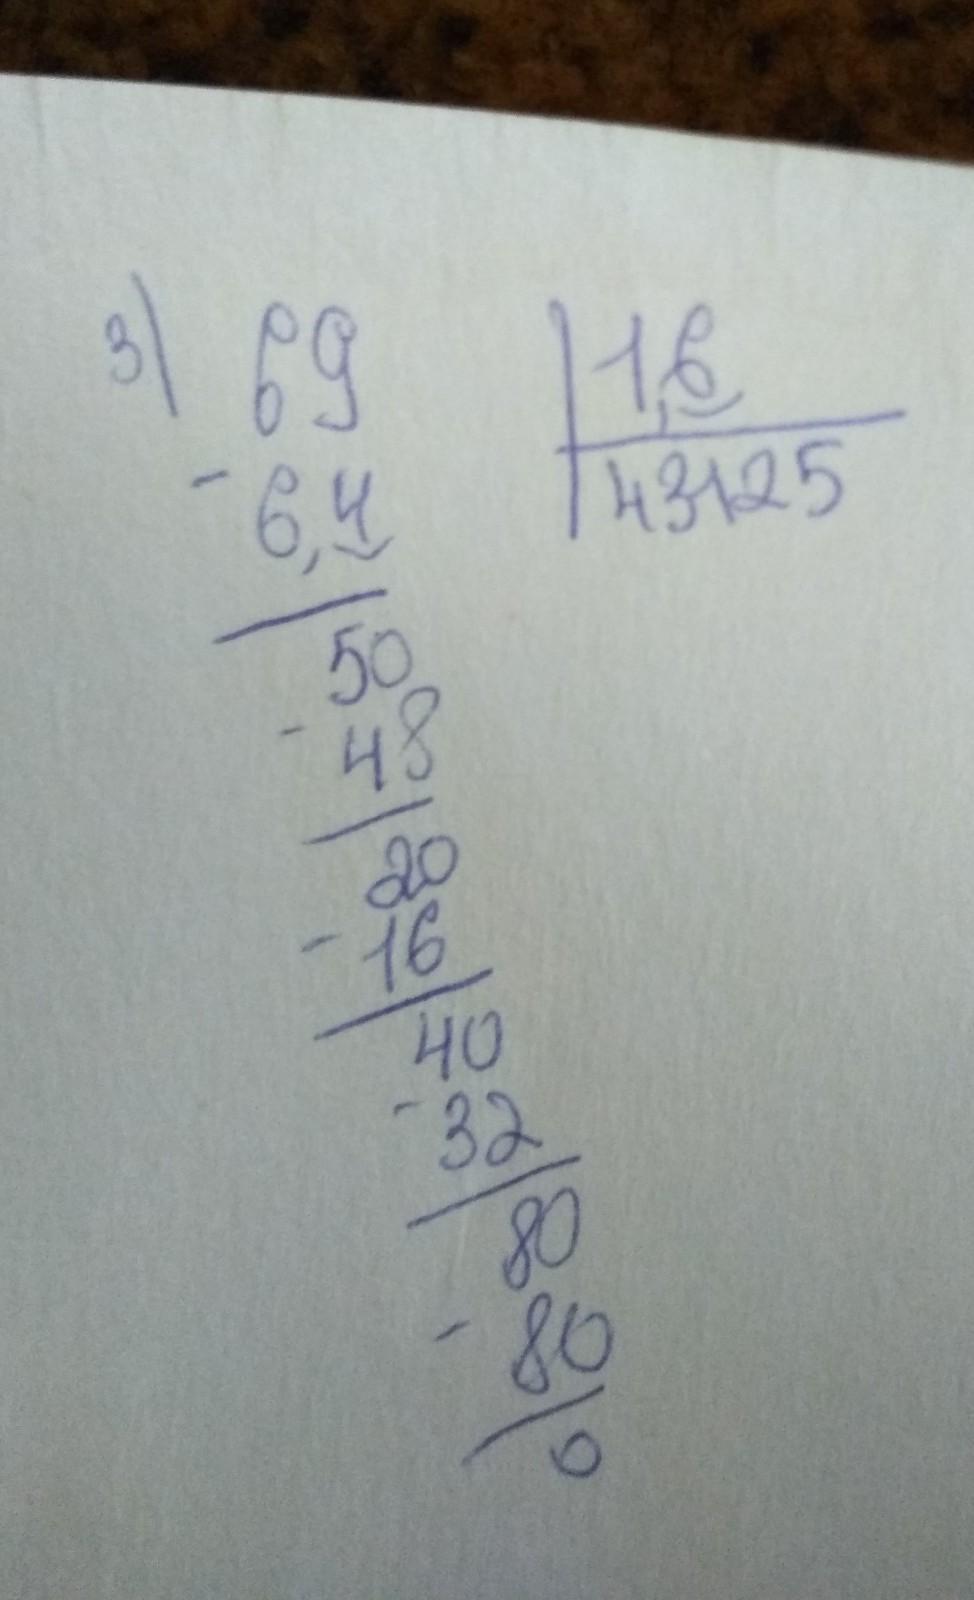 3) 69 | 1,6
- 6,4 | 43125
50
- 48
20
- 16
40
- 32
80
- 80
0